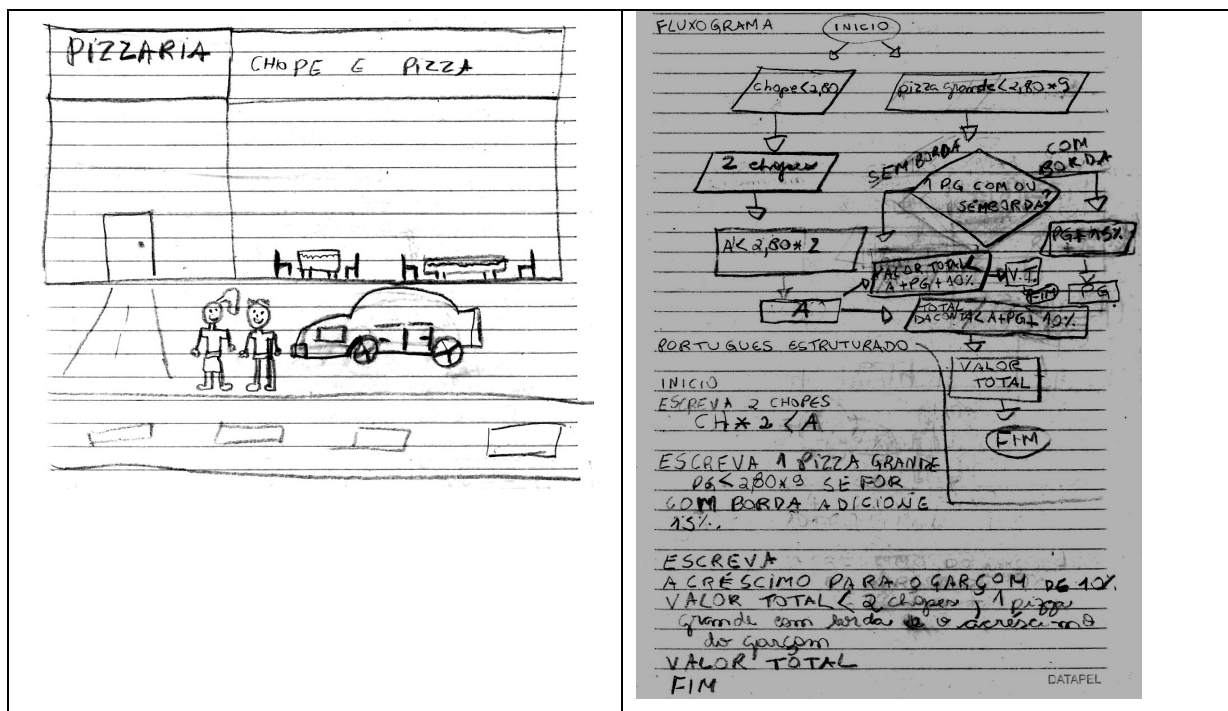 PIZZARIA
CHOPE E PIZZA
FLUXOGRAMA
INICIO
chope<2,80
pizza grande<2,80*9
2 chopes
SEM BORDA
COM BORDA
1 PG COM OU
SEM BORDA?
A<2,80*2
PG+15%
VALOR TOTAL<
A+PG+10%
V.T.
FIM
PG
A
TOTAL
DACONTA<A+PG+10%
VALOR
TOTAL
FIM
PORTUGUES ESTRUTURADO
INICIO
ESCREVA 2 CHOPES
CH*2<A
ESCREVA 1 PIZZA GRANDE
PG<2,80*9 SE FOR
COM BORDA ADICIONE
15%.
ESCREVA
ACRÉSCIMO PARA O GARÇOM DE 10%
VALOR TOTAL< 2 chopes, 1 pizza
grande com borda e o acréscimo
do garçom
VALOR TOTAL
FIM
DATAPEL